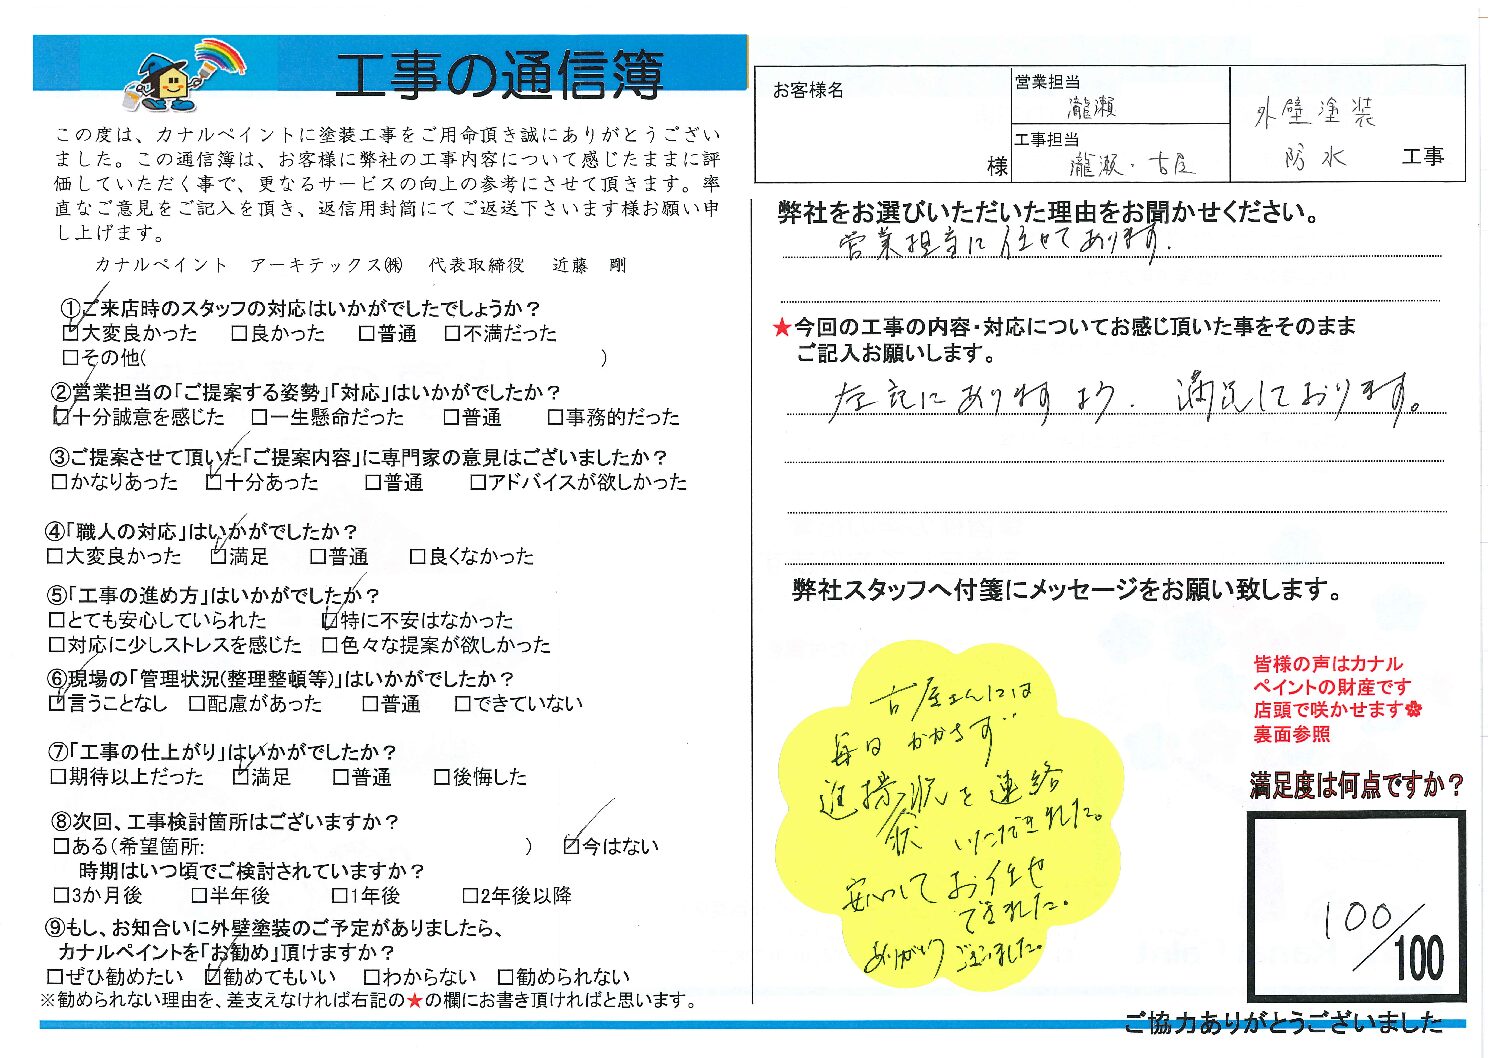 工事の通信簿
この度は、カナルペイントに塗装工事をご用命頂き誠にありがとうござい
ました。この通信簿は、お客様に弊社の工事内容について感じたままに評
価していただく事で、更なるサービスの向上の参考にさせて頂きます。率
直なご意見をご記入を頂き、返信用封筒にてご返送下さいます様お願い申
し上げます。
カナルペイント アーキテックス㈱ 代表取締役 近藤 剛
①ご来店時のスタッフの対応はいかがでしたでしょうか？
☑大変良かった □良かった □普通 □不満だった
□その他( )
②営業担当の「ご提案する姿勢」「対応」はいかがでしたか？
☑十分誠意を感じた □一生懸命だった □普通 □事務的だった
③ご提案させて頂いた「ご提案内容」に専門家の意見はございましたか？
□かなりあった ☑十分あった □普通 □アドバイスが欲しかった
④「職人の対応」はいかがでしたか？
□大変良かった ☑満足 □普通 □良くなかった
⑤「工事の進め方」はいかがでしたか？
□とても安心していられた ☑特に不安はなかった
□対応に少しストレスを感じた □色々な提案が欲しかった
⑥現場の「管理状況(整理整頓等)」はいかがでしたか？
☑言うことなし □配慮があった □普通 □できていない
⑦「工事の仕上がり」はいかがでしたか？
□期待以上だった ☑満足 □普通 □後悔した
⑧次回、工事検討箇所はございますか？
□ある(希望箇所: ) ☑今はない
時期はいつ頃でご検討されていますか？
□3か月後 □半年後 □1年後 □2年後以降
⑨もし、お知合いに外壁塗装のご予定がありましたら、
カナルペイントを「お勧め」頂けますか？
□ぜひ勧めたい ☑勧めてもいい □わからない □勧められない
※勧められない理由を、差支えなければ右記の★の欄にお書き頂ければと思います。
お客様名
様
営業担当
瀧瀬
工事担当
瀧瀬・古屋
外壁塗装
防水 工事
弊社をお選びいただいた理由をお聞かせください。
営業担当に任せてあります.
★今回の工事の内容・対応についてお感じ頂いた事をそのまま
ご記入お願いします。
左記にありますよう. 満足しております。
弊社スタッフへ付箋にメッセージをお願い致します。
古屋さんには
毎日かかさず
進捗状況を連絡
いただきました。
安心してお任せ
できました。
ありがとうございました。
皆様の声はカナル
ペイントの財産です
店頭で咲かせます
裏面参照
満足度は何点ですか？
100/100
ご協力ありがとうございました